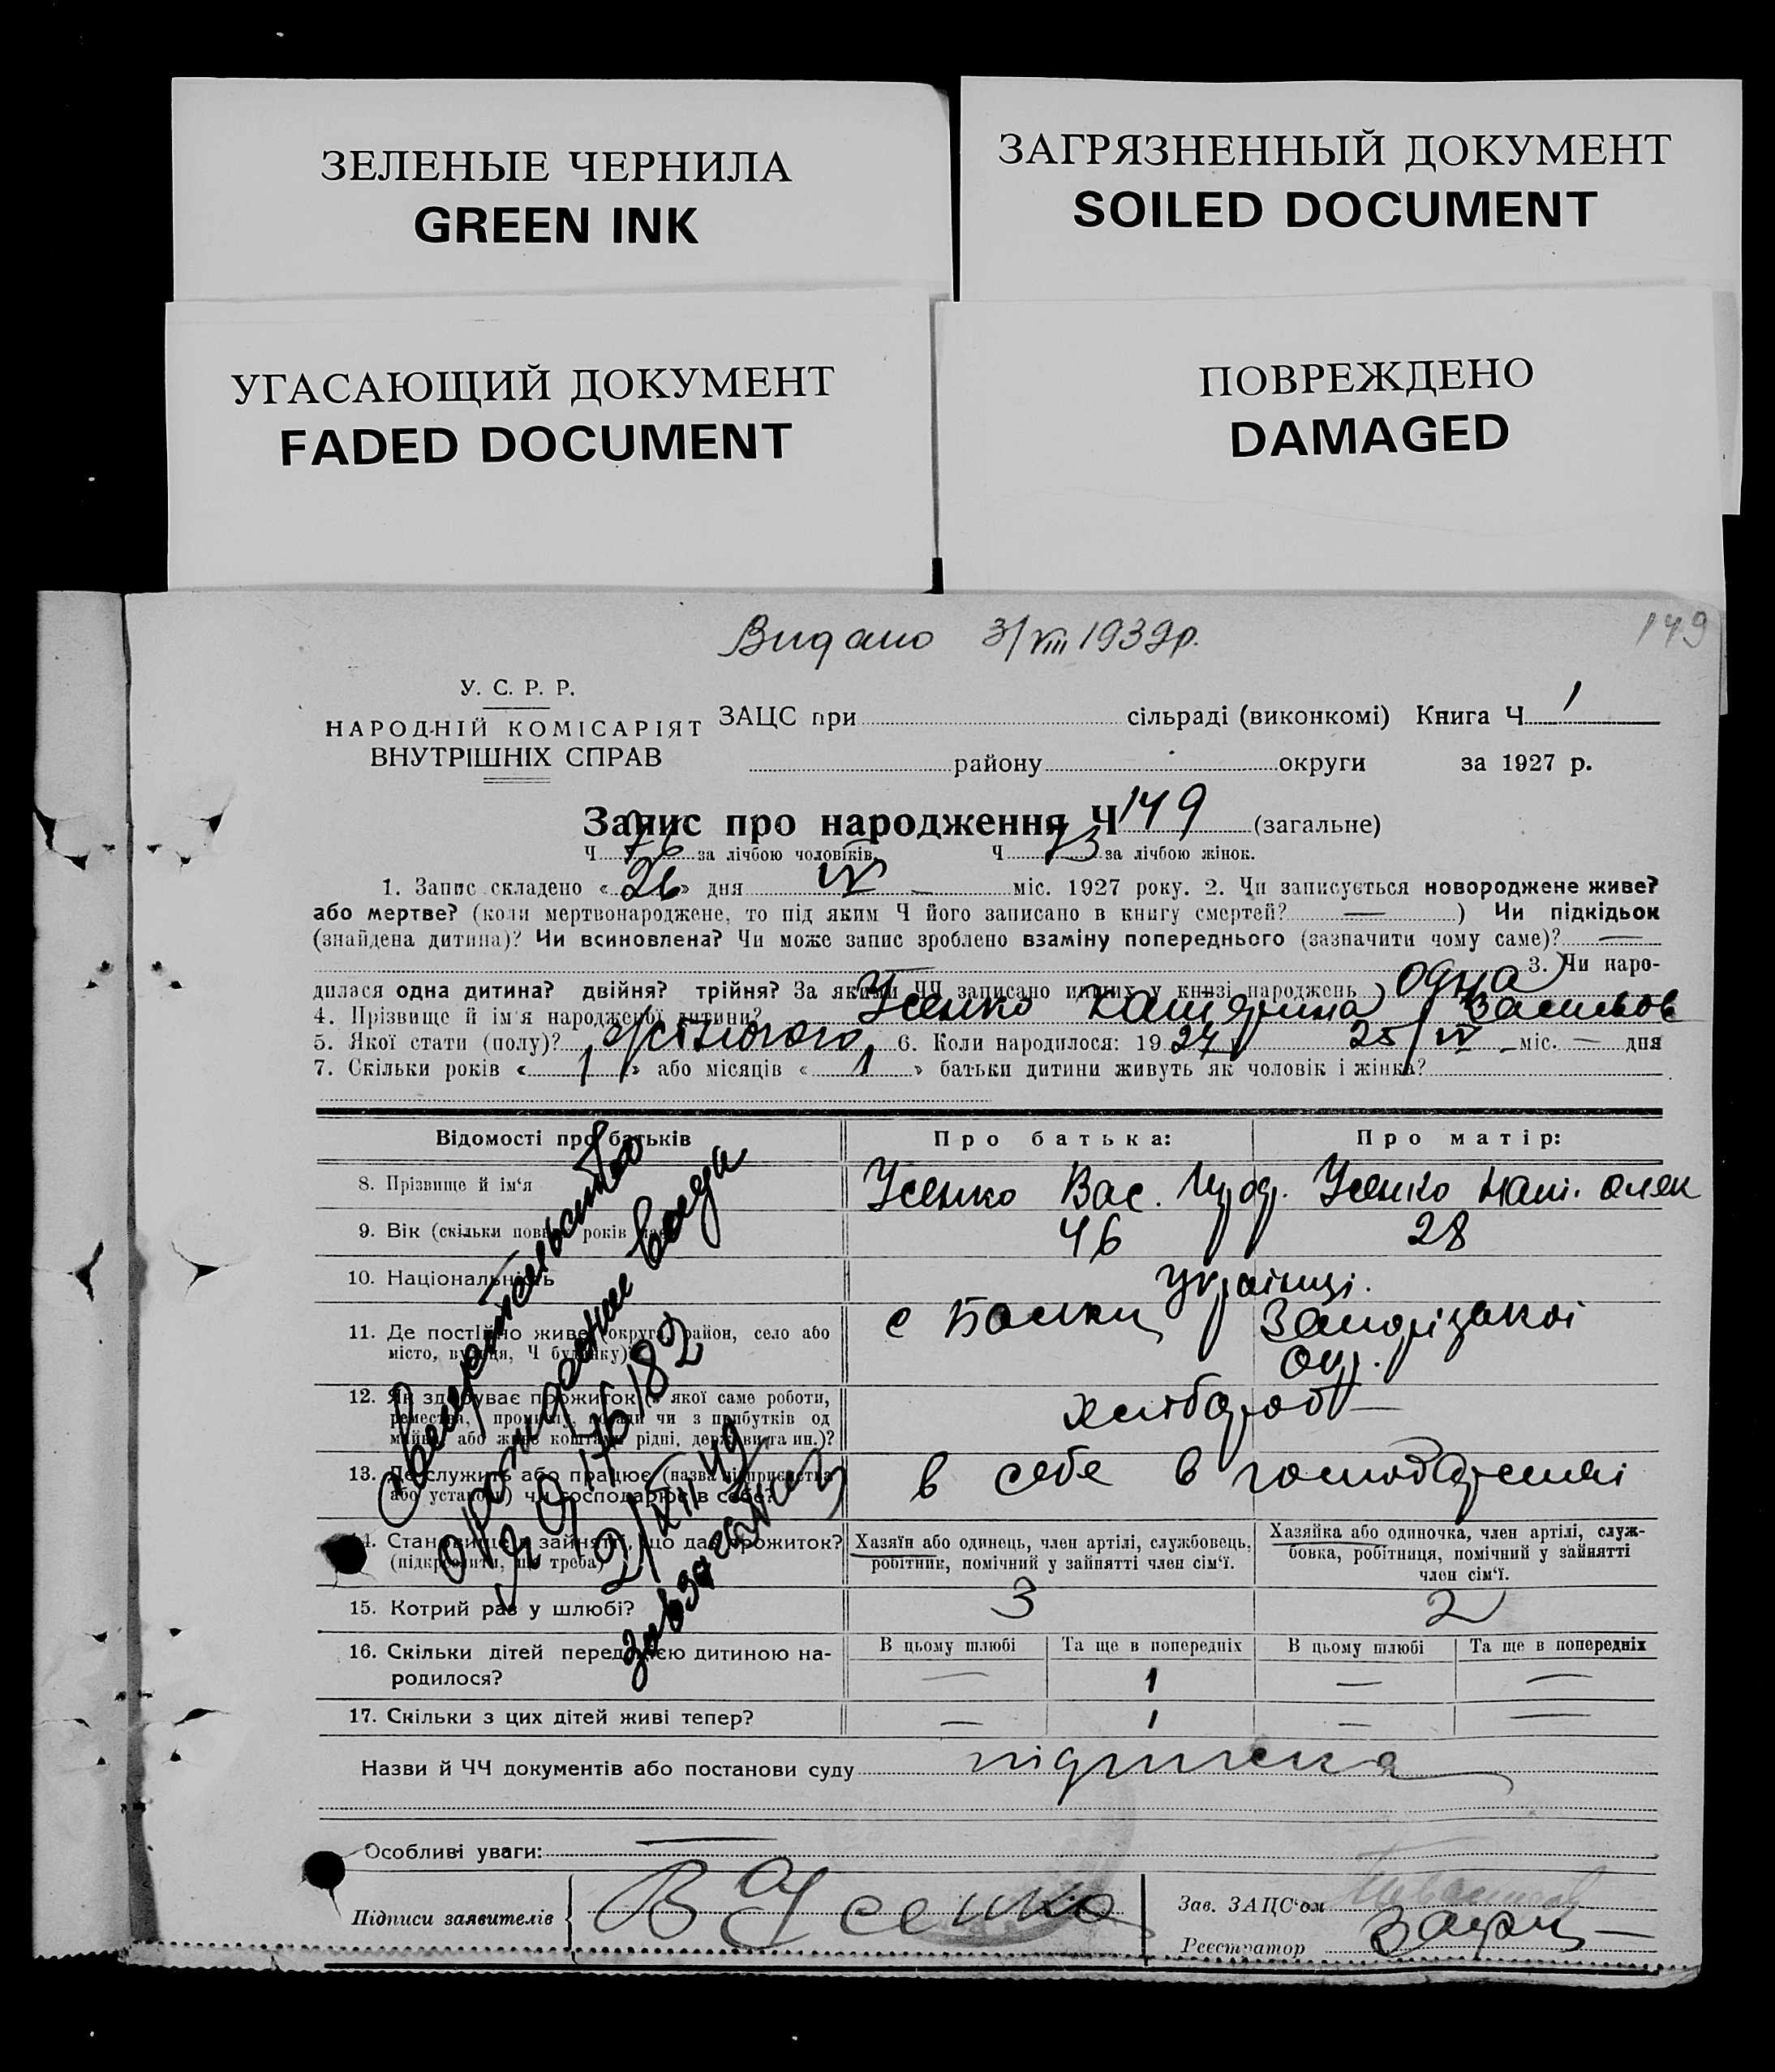 ЗЕЛЕНЫЕ ЧЕРНИЛА
GREEN INK
ЗАГРЯЗНЕННЫЙ ДОКУМЕНТ
SOILED DOCUMENT
УГАСАЮЩИЙ ДОКУМЕНТ
FADED DOCUMENT
ПОВРЕЖДЕНО
DAMAGED
Видано 3/VIII 1939р.
149
У. С. Р. Р.
НАРОДНІЙ КОМІСАРІЯТ
ВНУТРІШНІХ СПРАВ
ЗАЦС при сільраді (виконкомі) Книга Ч 1
району округи за 1927 р.
Запис про народження Ч 149 (загальне)
Ч 76 за лічбою чоловіків. Ч 73 за лічбою жінок.
1. Запис складено «26» дня IV — міс. 1927 року. 2. Чи записується новороджене живе?
або мертве? (коли мертвонароджене, то під яким Ч його записано в книгу смертей? — ) Чи підкідьок
(знайдена дитина)? Чи всиновлена? Чи може запис зроблено взаміну попереднього (зазначити чому саме)? —
3. Чи наро-
дилася одна дитина? двійня? трійня? За якими ЧЧ записано инших у книзі народжень одна
4. Прізвище й ім'я народженої дитини? Усенко Катерина Васильов
5. Якої стати (полу)? жіночого 6. Коли народилося: 1927 25/IV — міс. — дня
7. Скільки років « 1 » або місяців « 1 » батьки дитини живуть як чоловік і жінка?
Відомості про батьків
Про батька:
Про матір:
8. Прізвище й ім'я
Усенко Вас. Усенко Нат. Олек
9. Вік (скільки повних років має)
46
28
10. Національність
Українці.
11. Де постійно живе (округа, район, село або
місто, вулиця, Ч будинку)
с Балки Запорізької
Окр.
12. Як здобуває прожиток (з якої саме роботи,
ремества, промислу, посади чи з прибутків од
майна, або живе коштами рідні, держави та ин.)?
хлібороб —
13. Де служить або працює (назва підприємства
або установи) чи господарює в себе?
в себе в господарстві
14. Становище в зайнятті, що дає прожиток?
(підкреслити, що треба)
Хазяїн або одинець, член артілі, службовець,
робітник, помічний у зайнятті член сім'ї.
Хазяйка або одиночка, член артілі, служ-
бовка, робітниця, помічний у зайнятті
член сім'ї.
15. Котрий раз у шлюбі?
3
2
16. Скільки дітей перед цією дитиною на-
родилося?
В цьому шлюбі
Та ще в попередніх
В цьому шлюбі
Та ще в попередніх
— 1 — —
17. Скільки з цих дітей живі тепер?
— 1 — —
Назви й ЧЧ документів або постанови суду підписка
Особливі уваги: —
Підписи заявителів
В Усенко
Зав. ЗАЦС'ом
Реєстратор
Свидетельство
о рождении выдан